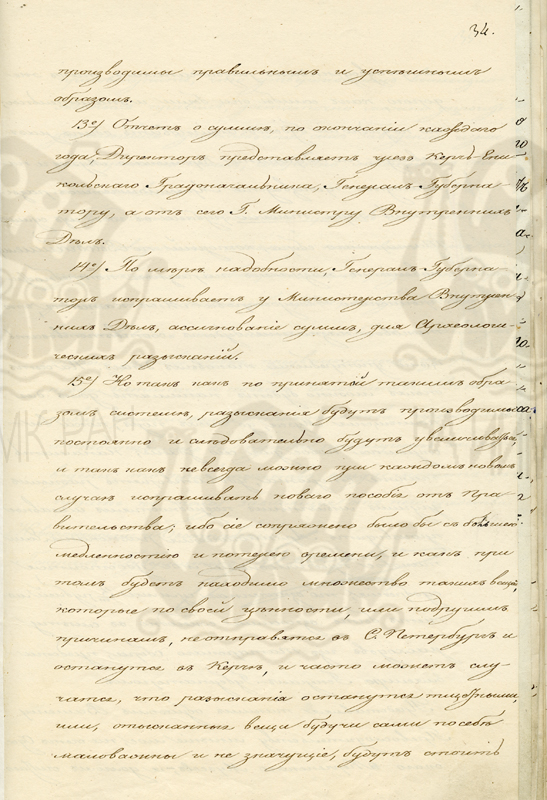 34.
производимы правильнымъ и успѣшнымъ
образомъ.
13е) Отчетъ о суммѣ, по окончаніи каждаго
года, Директоръ представляетъ чрезъ Керчь-Ени-
кольскаго Градоначальника, Генералъ Губерна-
тору, а отъ сего Г. Министру Внутреннихъ
Дѣлъ.
14е) По мѣрѣ надобности, Генералъ Губерна-
торъ испрашиваетъ у Министерства Внутрен-
нихъ Дѣлъ, ассигнованіе суммъ, для Археологи-
ческихъ разысканій.
15е) Но такъ какъ по принятой такимъ обра-
зомъ системѣ, разысканія будутъ производимы
постоянно и слѣдовательно будутъ увеличиваться,
и такъ какъ невсегда можно при каждомъ новомъ
случаѣ испрашивать новаго пособія отъ Пра-
вительства; ибо сіе сопряжено было бы съ большею
медленностію и потерею времени, и какъ при
томъ будетъ находимо множество такихъ вещей,
которые по своей цѣнности, или подругимъ
причинамъ, не отправятся въ С. Петербургъ и
останутся въ Керчи, и часто можетъ слу-
чатся, что разысканія останутся тщетными,
или, отысканныя вещи будучи сами по себѣ
маловажны и не значущіе, будутъ стоить